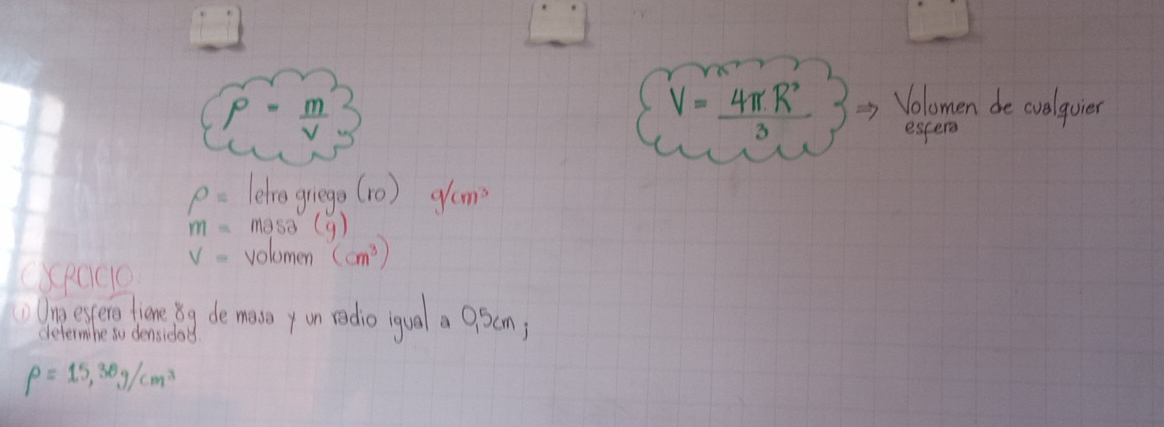 ρ = m/v
V = 4π R³/3 ⇒ Volumen de cualquier
esfera
ρ = letra griega (ro) g/cm³
m = masa (g)
v = volumen (cm³)
EJERCICIO
① Una esfera tiene 8g de masa y un radio igual a 0,5cm;
determine su densidad.
ρ = 15,38g/cm³